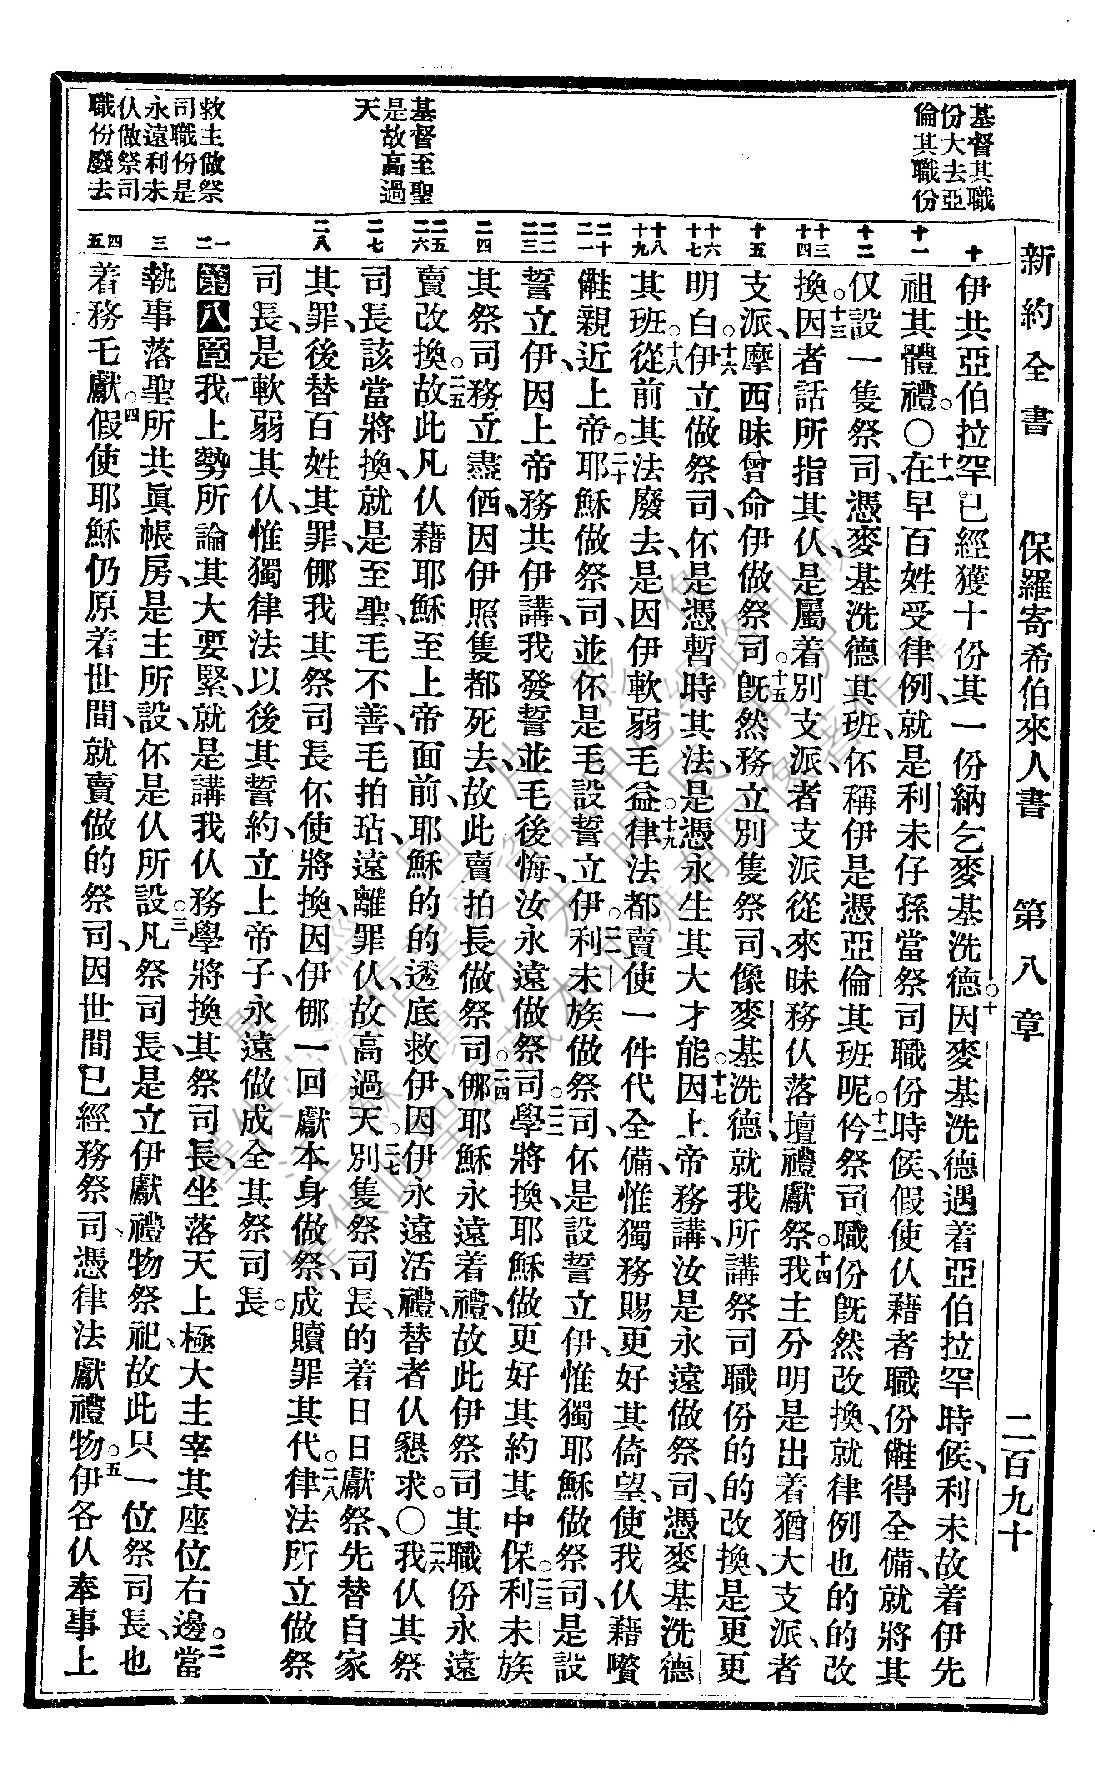 新約全書　保羅寄希伯來人書　第八章　二百九十
基督其職
份大去亞
倫其職份
基督至聖
是故高過
天
救主做祭
司職份是
永遠利未
仫做祭司
職份廢去
十
十一
十二
十三
十四
十五
十六
十七
十八
十九
二十
二一
二二
二三
二四
二五
二六
二七
二八
一
二
三
四
五
伊共亞伯拉罕已經獲十份其一份納乞麥基洗德○十因麥基洗德遇着亞伯拉罕時候、利未故着伊先
祖其體禮。○十一在早百姓受律例、就是利未仔孫當祭司職份時候、假使仫藉者職份、得全備、就將其
仅設一隻祭司、憑麥基洗德其班、伓稱伊是憑亞倫其班呢。十二仱祭司職份旣然改換、就律例也的的改
換。十三因者話所指其仫、是屬着別支派、者支派從來昧務仫落壇禮獻祭。十四我主分明是出着猶大支派、者
支派、摩西昧曾命伊做祭司。十五旣然務立別隻祭司、像麥基洗德、就我所講祭司職份的的改換、是更更
明白。十六伊立做祭司、伓是憑暫時其法、是憑永生其大才能。十七因上帝務講、汝是永遠做祭司、憑麥基洗德
其班。十八從前其法廢去、是因伊軟弱毛益。十九律法都賣使一件代全備、惟獨務賜更好其倚望、使我仫藉嚽
親近上帝。二十耶穌做祭司、並伓是毛設誓立伊。二一利未族做祭司、伓是設誓立伊、惟獨耶穌做祭司、是設
誓立伊、因上帝務共伊講、我發誓並毛後悔、汝永遠做祭司。二二學將換、耶穌做更好其約其中保。二三利未族
其祭司務立盡価、因伊照隻都死去、故此賣拍長做祭司。二四㑚耶穌永遠着禮、故此伊祭司其職份永遠
賣改換。二五故此凡仫藉耶穌至上帝面前、耶穌的的透底救伊、因伊永遠活禮、替者仫懇求。○二六我仫其祭
司長、該當將換、就是至聖毛不善毛拍玷、遠離罪仫、故高過天。二七別隻祭司長、的着日日獻祭、先替自家
其罪、後替百姓其罪、㑚我其祭司長伓使將換、因伊㑚一回獻本身做祭、成贖罪其代。二八律法所立做祭
司長、是軟弱其仫、惟獨律法以後其誓約、立上帝子、永遠做成全其祭司長。
第八章一我上勢所論其大要緊、就是講我仫務學將換其祭司長、坐落天上極大主宰其座位右邊。二當
執事落聖所共眞帳房、是主所設、伓是仫所設。三凡祭司長、是立伊獻禮物祭祀、故此只一位祭司長、也
着務乇獻。四假使耶穌仍原着世間、就賣做的祭司、因世間已經務祭司憑律法獻禮物。五伊各仫奉事上